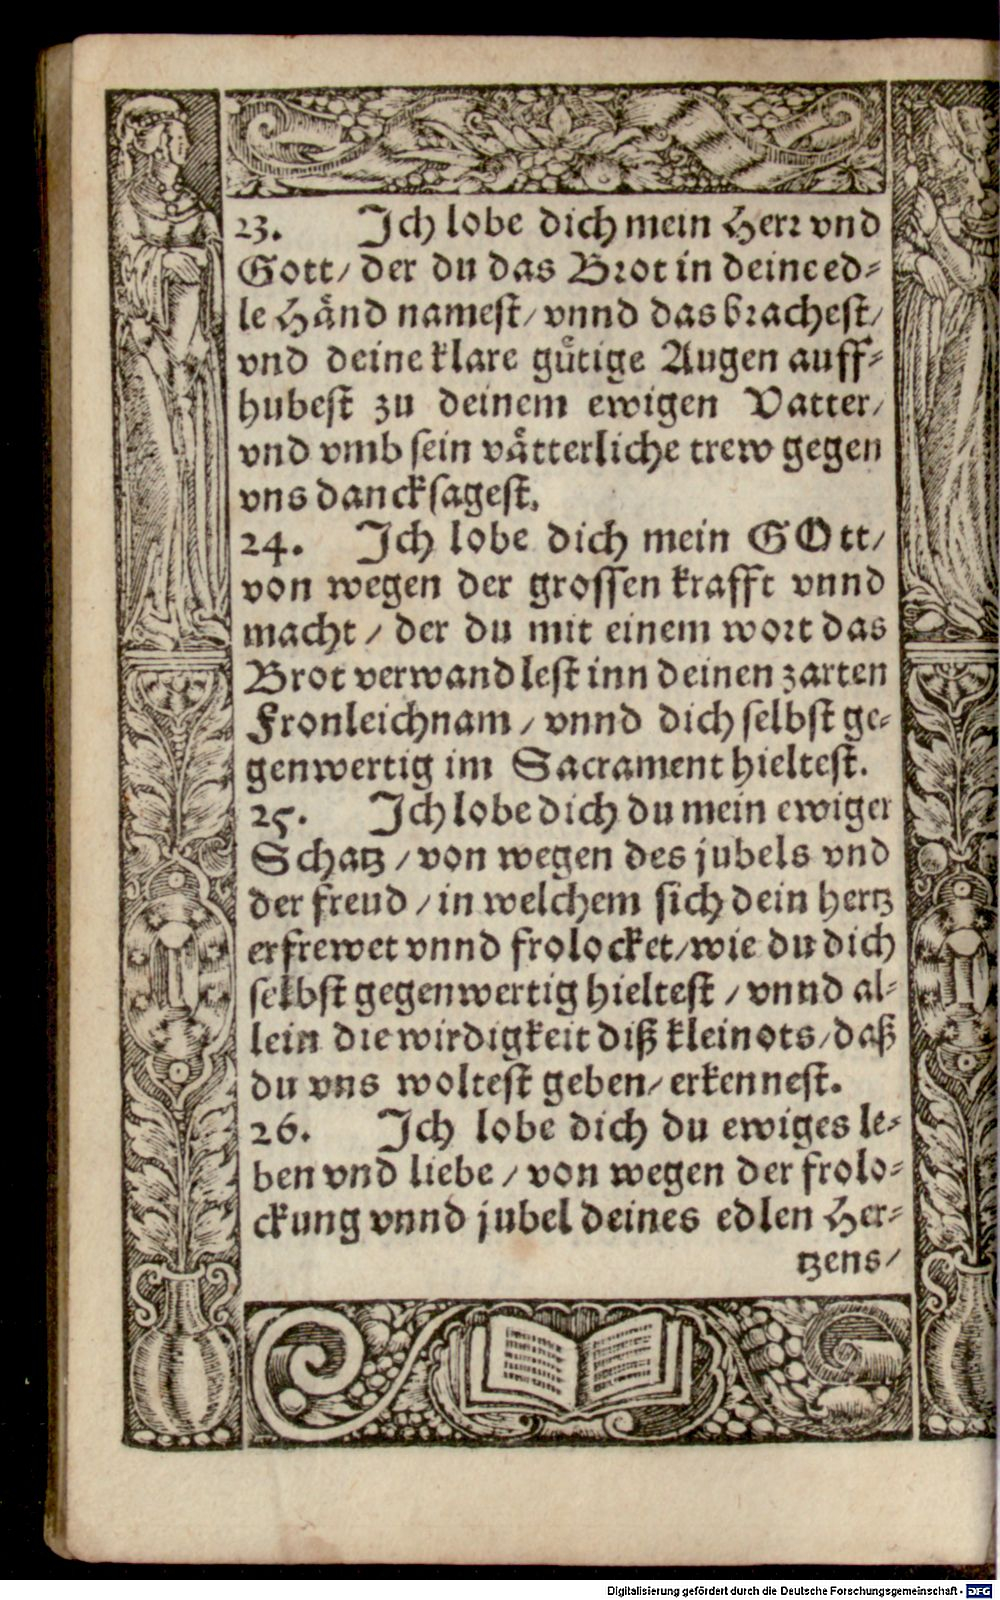 23. Ich lobe dich mein Herr vnd
Gott/ der du das Brot in deine ed-
le Händ namest/ vnnd das brachest/
vnd deine klare gütige Augen auff-
hubest zu deinem ewigen Vatter/
vnd vmb sein vätterliche trew gegen
vns dancksagest.
24. Ich lobe dich mein GOtt/
von wegen der grossen krafft vnnd
macht/ der du mit einem wort das
Brot verwandlest inn deinen zarten
Fronleichnam/ vnnd dich selbst ge-
genwertig im Sacrament hieltest.
25. Ich lobe dich du mein ewiger
Schatz/ von wegen des jubels vnd
der freud/ in welchem sich dein hertz
erfrewet vnnd frolocket/ wie du dich
selbst gegenwertig hieltest/ vnnd al-
lein die wirdigkeit diß kleinots/ daß
du vns woltest geben/ erkennest.
26. Ich lobe dich du ewiges le-
ben vnd liebe/ von wegen der frolo-
ckung vnnd jubel deines edlen Her-
tzens/
Digitalisierung gefördert durch die Deutsche Forschungsgemeinschaft - DFG